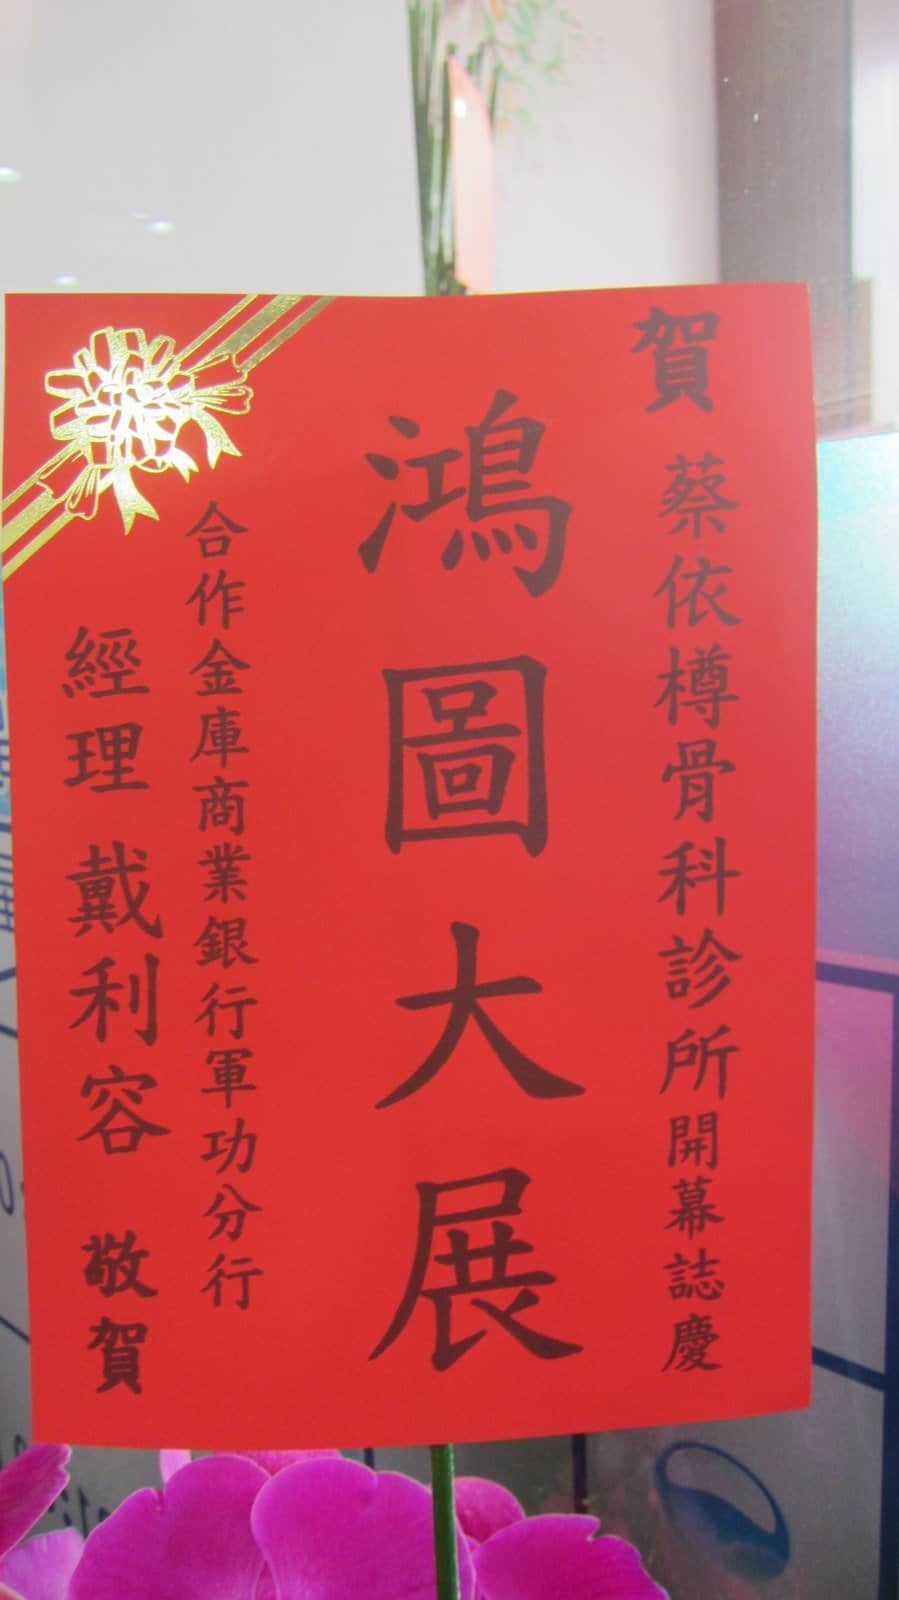 賀 蔡依樽骨科診所開幕誌慶
鴻圖大展
合作金庫商業銀行軍功分行
經理 戴利容 敬賀